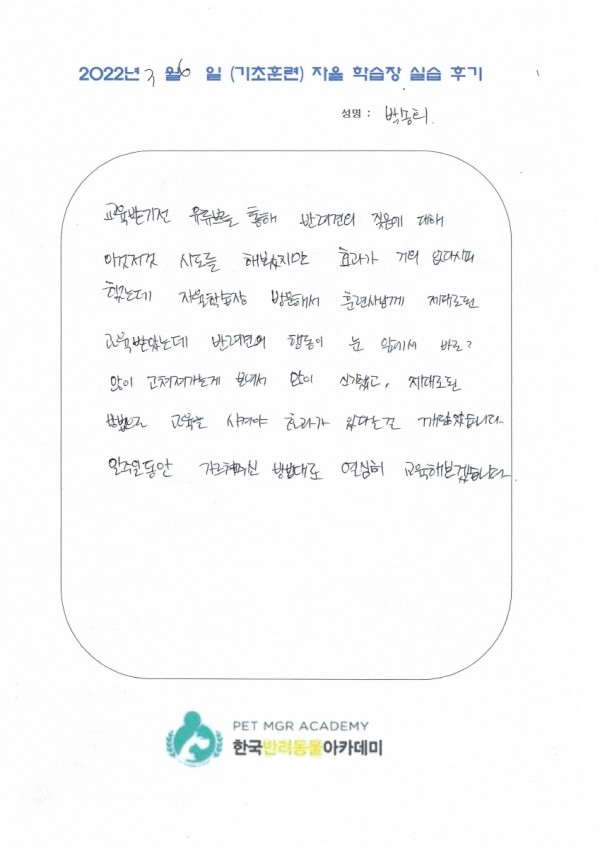 2022년 3 월 6 일 (기초훈련) 자율 학습장 실습 후기
성명 : 박송희
교육받기전 유튜브를 통해 반려견의 짖음에 대해
이것저것 시도를 해보았지만 효과가 거의 없다시피
했는데 자율학습장 방문해서 훈련사님께 제대로된
교육받았는데 반려견의 행동이 눈 앞에서 바로
많이 고쳐져가는게 보여서 많이 신기했고, 제대로된
방법으로 교육을 시켜야 효과가 있다는걸 깨달았습니다.
일주일동안 가르쳐주신 방법대로 열심히 교육해보겠습니다.
PET MGR ACADEMY
한국반려동물아카데미